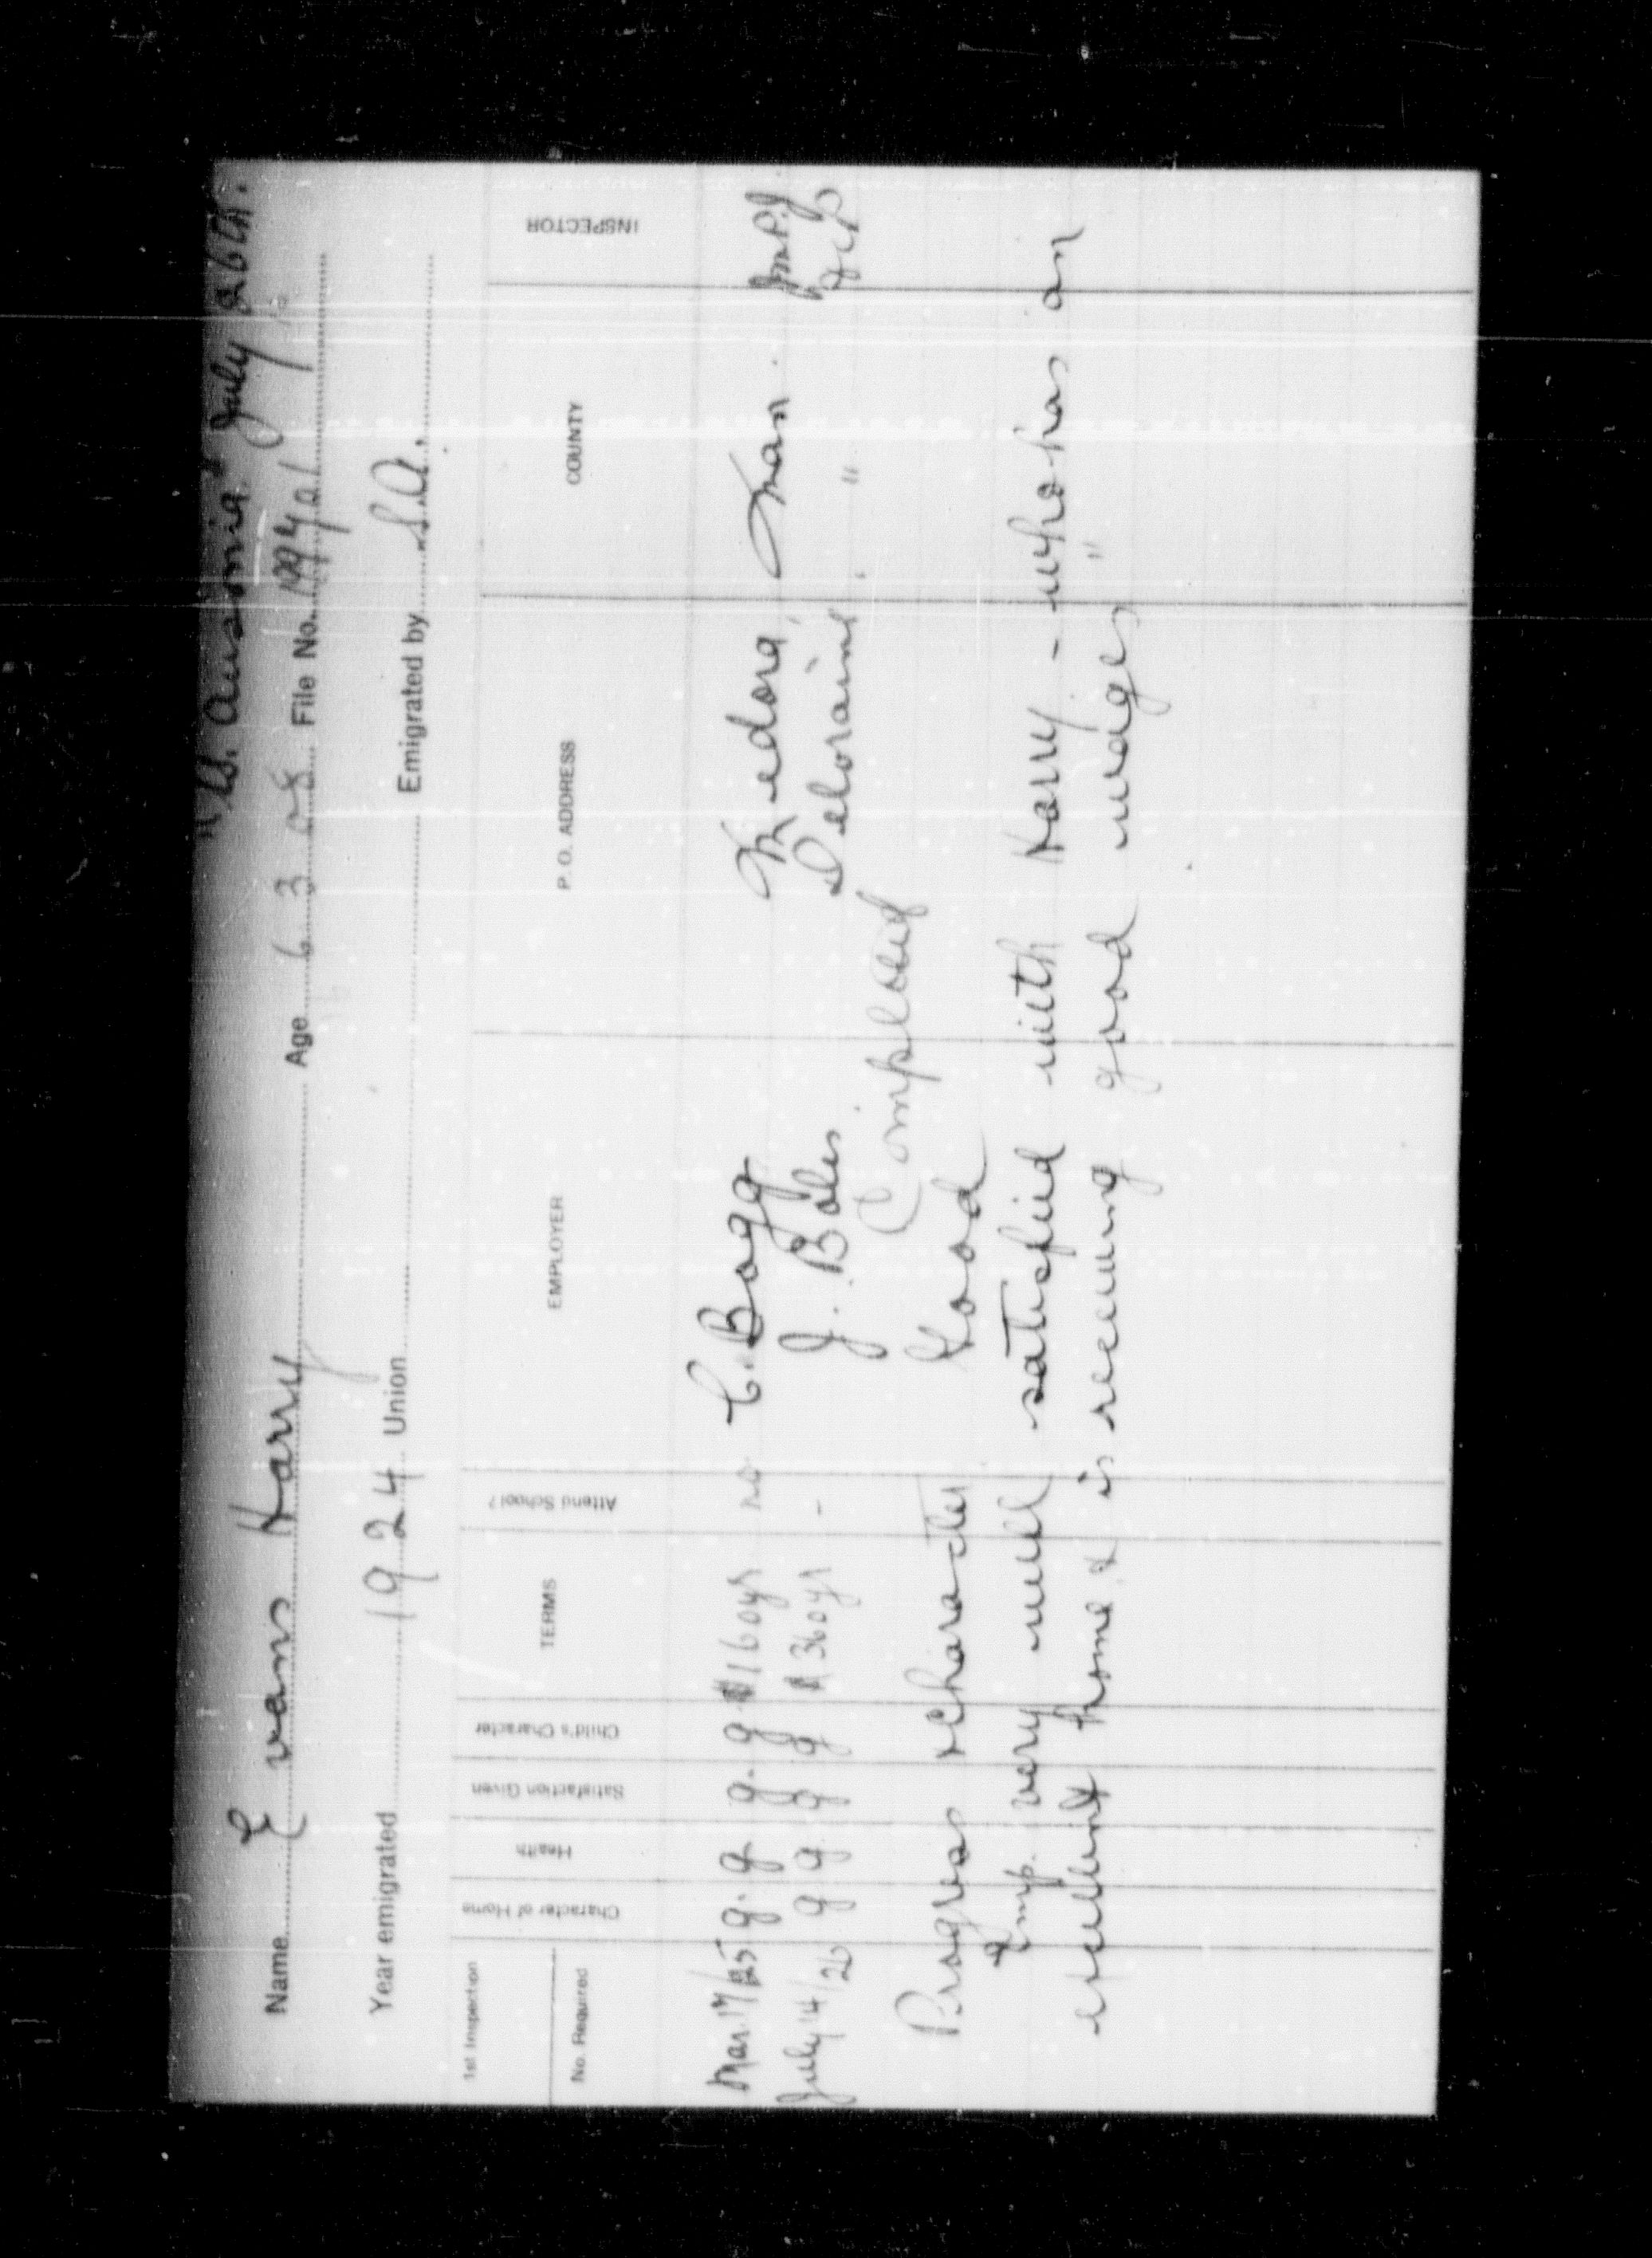 "S.S. Ausonia" July 26th.
Name Evans Harry Age 6 3 08 File No. 199421
Year emigrated 1924 Union Emigrated by S.A.
1st Inspection
No. Required
Character of Home
Health
Satisfaction Given
Child's Character
TERMS
Attend School?
EMPLOYER
P. O. ADDRESS
COUNTY
INSPECTOR
Mar 17/25 g. g. g. g $160 yr no C. Bogg Medora, Man.
July 14/26 g g g g $360 yr - J. Boles Deloraine "
Completed
Progress & Character Good
Emp. very well satisfied with Harry - who has an
excellent home & is receiving good wages "